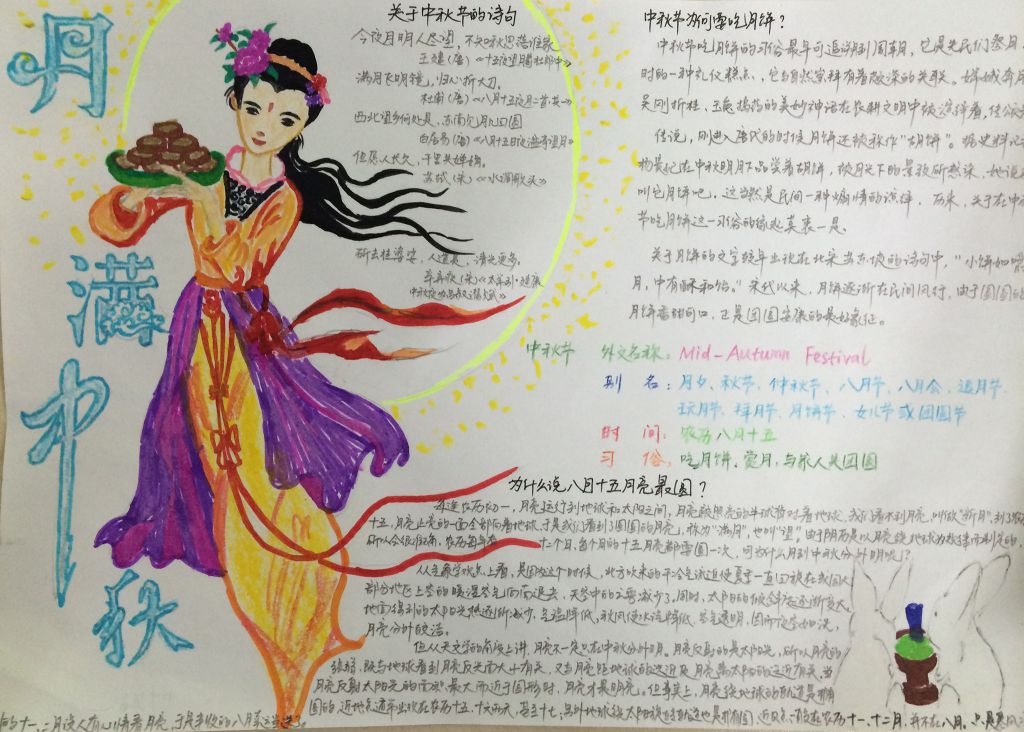 月
满
中
秋
关于中秋节的诗句
今夜月明人尽望，不知秋思落谁家
王建（唐）《十五夜望月寄杜郎中》
满月飞明镜，归心折大刀。
杜甫（唐）《八月十五夜月二首·其一》
西北望乡何处是，东南见月几回圆
白居易（唐）《八月十五日夜湓亭望月》
但愿人长久，千里共婵娟。
苏轼（宋）《水调歌头》
斫去桂婆娑，人道是，清光更多。
辛弃疾（宋）《太常引·建康
中秋夜为吕叔潜赋》
中秋节为何要吃月饼？
中秋节吃月饼的习俗最早可追溯到周朝，它是先民们祭月
时的一种礼仪糕点，它与自然崇拜有着极深的关联。嫦娥奔月
吴刚折桂，玉兔捣药的美妙神话在农耕文明中被演绎着，
传说，刚进入唐代的时候月饼还被称作"胡饼"。据史料记
杨贵妃在中秋明月下品尝着胡饼，被月光下的景致所感染，她说
叫它月饼吧，这当然是民间一种煽情的演绎，历来，关于在中
节吃月饼这一习俗的缘起莫衷一是。
关于月饼的文字较早出现在北宋苏东坡的诗句中，"小饼如嚼
月，中有酥和饴。"宋代以来，月饼逐渐在民间风行，由于圆圆的
月饼香甜可口，正是团圆安康的最好象征。
中秋节 外文名称：Mid-Autumn Festival
别 名：月夕、秋节、仲秋节、八月节、八月会、追月节、
玩月节、拜月节、月饼节、女儿节或团圆节
时 间：农历八月十五
习 俗：吃月饼、赏月、与家人共团圆
为什么说八月十五月亮最圆？
每逢农历初一，月亮运行到地球和太阳之间，月亮被照亮的半球背对着地球，我们看不到月亮，叫做"新月"，到了农
十五，月亮上亮的一面全部向着地球，于是我们看到了圆圆的月亮，称为"满月"，也叫"望"。由于阴历是以月亮绕地球为
十二个月，每个月的十五月亮都要圆一次，可为什么月到中秋分外明呢？
从气象学观点上看，是因为这个时候，北方吹来的干冷气流迫使夏季一直回旋在我国大
部分地区上空的暖湿空气向南退去，天空中的云雾减少了，同时，太阳的倾斜度逐渐变大，
地面得到的太阳光热逐渐减少，气温降低，秋风使水汽降低，空气透明，因而夜空如洗，
月亮分外皎洁。
但从天文学的角度上讲，月亮不一定只在中秋分外明。月亮反射的是太阳光，所以月亮的
强弱，既与地球看到月亮反光面大小有关，又与月亮距地球的远近及月亮离太阳的远近有关，当
月亮反射太阳光的面积最大而近于圆形时，月亮才最明亮。但事实上，月亮绕地球的轨道是椭
圆的，近地点通常出现在农历十五、十六两天，甚至十七；另外地球绕太阳旋转的轨道也是椭圆，近日点一般在农历十一、十二月，并不在八月。只是
的十一、二月没人有心情看月亮，于是丰收的八月